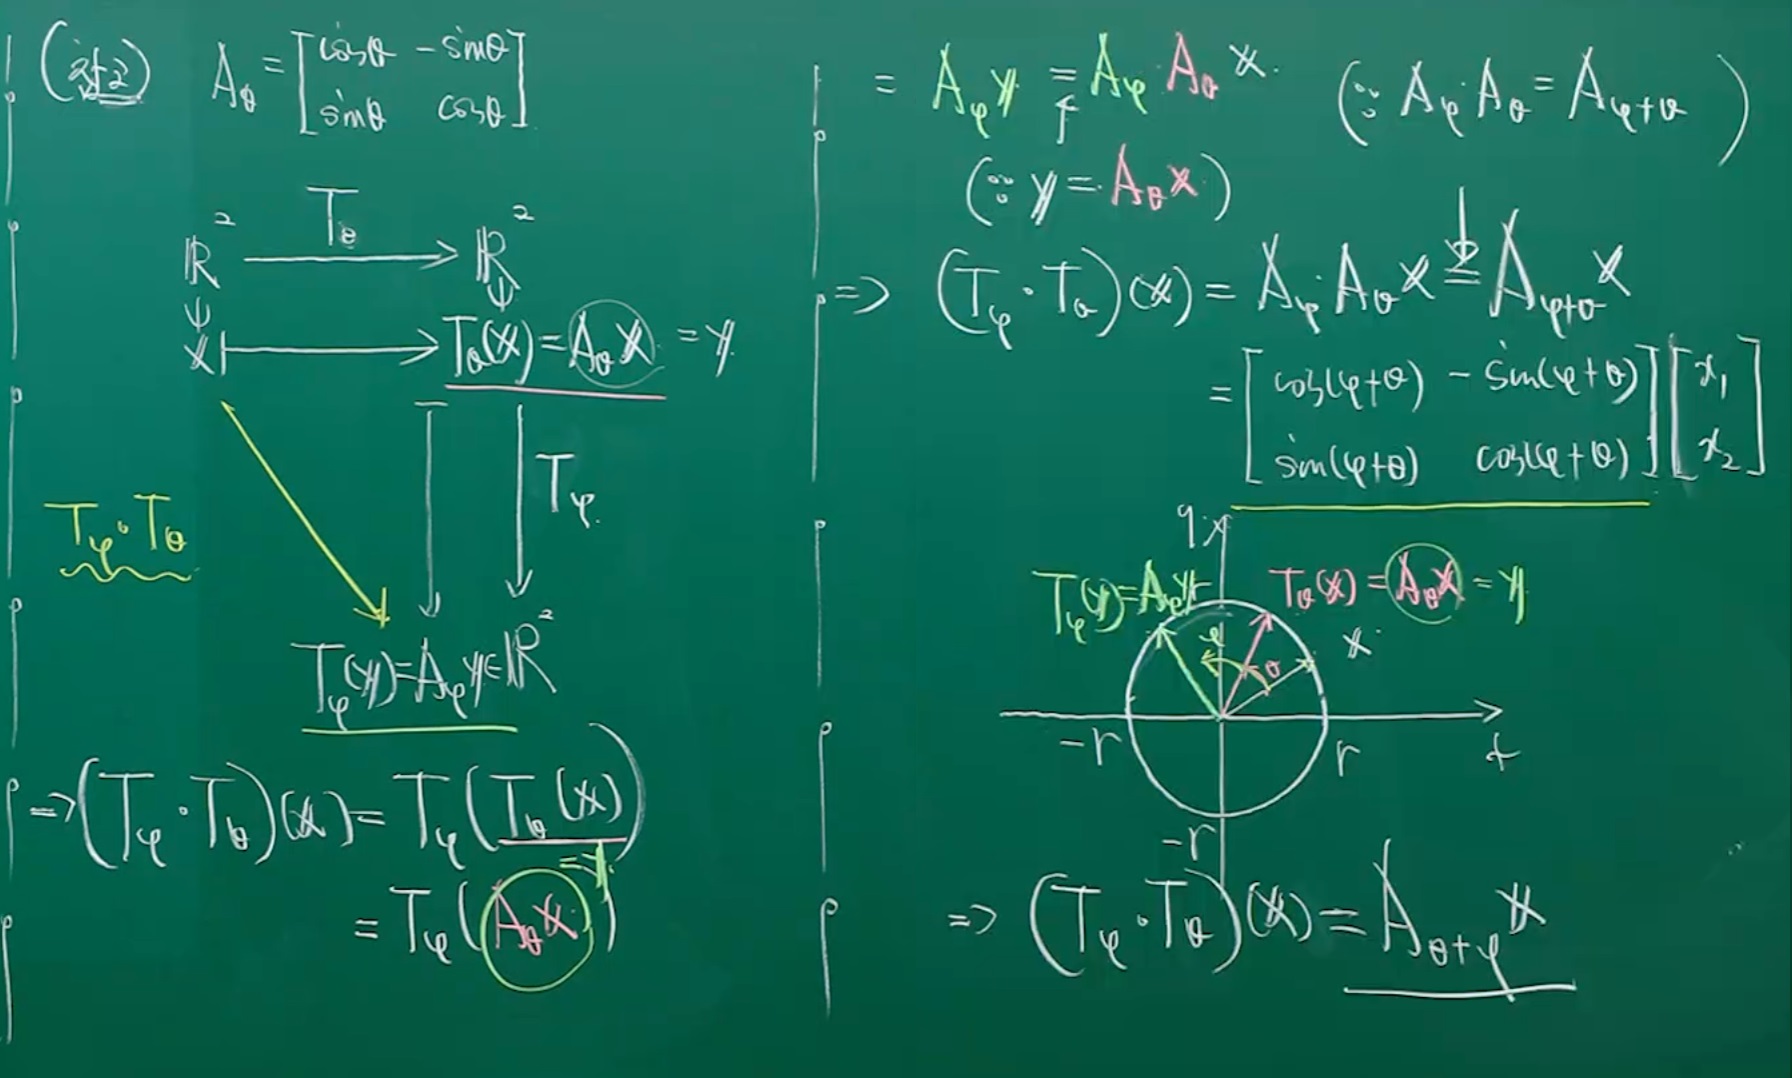 (참2) A_θ = [cosθ -sinθ
sinθ cosθ]
T_θ
ℝ² → ℝ²
Ψ Ψ
𝕩 ↦ T_θ(𝕩) = A_θ𝕩 = 𝕪
T_φ
T_φ∘T_θ
T_φ(𝕪) = A_φ𝕪 ∈ ℝ²
=> (T_φ∘T_θ)(𝕩) = T_φ(T_θ(𝕩))
=𝕪
= T_φ(A_θ𝕩)
= A_φ𝕪 = A_φ·A_θ𝕩. (∵ A_φ·A_θ = A_φ+θ)
(∵ 𝕪 = A_θ𝕩)
=> (T_φ∘T_θ)(𝕩) = A_φ·A_θ𝕩 = A_φ+θ𝕩
= [cos(φ+θ) -sin(φ+θ)] [x₁]
[sin(φ+θ) cos(φ+θ)] [x₂]
T_φ(𝕪) = A_φ𝕪 r T_θ(𝕩) = A_θ𝕩 = 𝕪
φ θ 𝕩
-r r
-r
=> (T_φ∘T_θ)(𝕩) = A_θ+φ𝕩